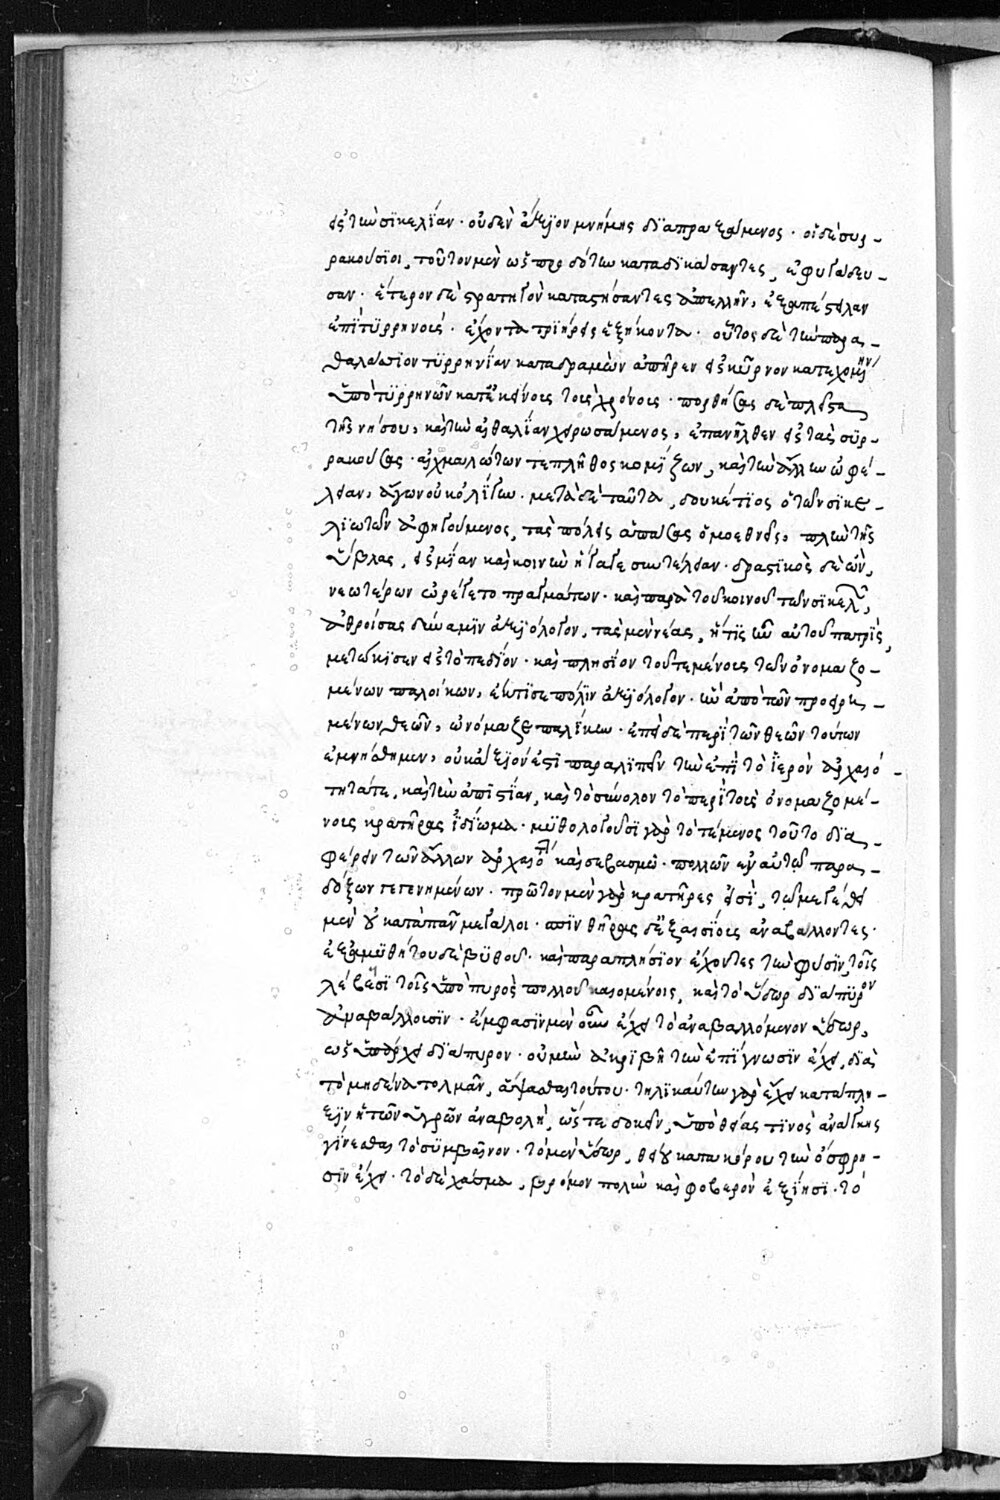 εἰς τὴν σικελΐαν · οὐδὲν ἄξιον μνήμης δϊαπραξάμενος · οἱ δὲ συ-
ρακούσϊοι, τοῦτον μὲν ὡς προδότην καταδϊκάσαντες, ἐφυγάδευ-
σαν · ἕτερον δὲ στρατηγὸν καταστήσαντες ἀπελλῆν, ἐξαπέστειλαν
ἐπῒ τϋρρηνούς · ἔχοντα τρϊήρεις ἑξήκοντα · οὗτος δὲ τὴν παρα-
θαλάττϊον τϋρρηνΐαν καταδραμὼν ἀπῆρεν εἰς κῦρνον κατεχομένην
ὑπὸ τϋρρηνῶν κατ' ἐκείνους τοὺς χρόνους · πορθήσας δὲ πλεῖστα
τῆς νήσου, καὶ τὴν αἰθαλΐαν χειρωσάμενος, ἐπανῆλθεν εἰς τὰς σϋρ-
ρακούσας · αἰχμαλώτων τε πλῆθος κομΐζων, καὶ τὴν ἄλλην ὠφέ-
λειαν, ἄγων οὐκ ὀλΐγην · μετὰ δὲ ταῦτα, δουκέτϊος ὁ τῶν σϊκε-
λϊωτῶν ἀφηγούμενος, τὰς πόλεις ἁπάσας ὁμοεθνεῖς, πλὴν τῆς
ὕβλας, εἰς μΐαν καὶ κοινὴν ἤγαγε συντέλειαν · δραστϊκὸς δὲ ὢν,
νεωτέρων ὠρέγετο πραγμάτων · καὶ παρὰ τοῦ κοινοῦ τῶν σϊκελῶν,
ἀθροίσας δύναμϊν ἀξϊόλογον, τὰς μὲν νέας, ἥτϊς ἦν αὐτοῦ πατρΐς,
μετῴκϊσεν εἰς τὸ πεδΐον · καὶ πλησΐον τοῦ τεμένους τῶν ὀνομαζο-
μένων παλοίκων, ἔκτϊσε πόλϊν ἀξϊόλογον · ἣν ἀπὸ τῶν προειρη-
μένων θεῶν, ὠνόμαζε παλΐκην · ἐπεὶ δὲ περὶ τῶν θεῶν τούτων
ἐμνήσθημεν, οὐκ ἄξϊόν ἐστϊ παραλϊπεῖν τὴν ἐπῒ τὸ ἱερὸν ἀρχαιό-
τητά τε, καὶ τὴν ἀπϊστΐαν, καὶ τὸ σύνολον τὸ περῒ τοὺς ὀνομαζομέ-
νους κρατῆρας ἰδΐωμα · μϋθολογοῦσϊ γὰρ τὸ τέμενος τοῦτο δϊα-
φέρειν τῶν ἄλλων ἀρχαιότητι καὶ σεβασμῷ · πολλῶν ἐν αὐτῷ παρα-
δόξων γεγενημένων · πρῶτον μὲν γὰρ κρατῆρες εἰσῒ, τῷ μεγέθει
μὲν οὐ κατὰ πᾶν μεγάλοι · σπϊνθῆρας δ' ἐξαισΐους ἀναβάλλοντες ·
ἐξ ἀμϋθήτου δὲ βϋθοῦ · καὶ παραπλήσϊον ἔχοντες τὴν φύσϊν, τοῖς
λέβησϊ τοῖς ὑπὸ πυρὸς πολλοῦ καιομένοις, καὶ τὸ ὕδωρ δϊάπϋρον
ἀναβάλλουσϊν · ἔμφασϊν μὲν οὖν ἔχει τὸ ἀναβαλλόμενον ὕδωρ,
ὡς ὑπάρχει δϊάπυρον · οὐ μὴν ἀκρϊβῆ τὴν ἐπΐγνωσϊν ἔχει, δϊὰ
τὸ μηδένα τολμᾶν, ἅψασθαι τούτου · τηλϊκαύτην γὰρ ἔχει κατάπλη-
ξϊν ἡ τῶν ὑγρῶν ἀναβολὴ, ὥστε δοκεῖν, ὑπὸ θείας τϊνὸς ἀνάγκης
γΐνεσθαι τὸ σϋμβαῖνον · τὸ μὲν ὕδωρ, θείου κατακόρου τὴν ὄσφρη-
σϊν ἔχει · τὸ δὲ χάσμα, βρόμον πολὺν καὶ φοβερὸν ἐξΐησϊ · τὸ